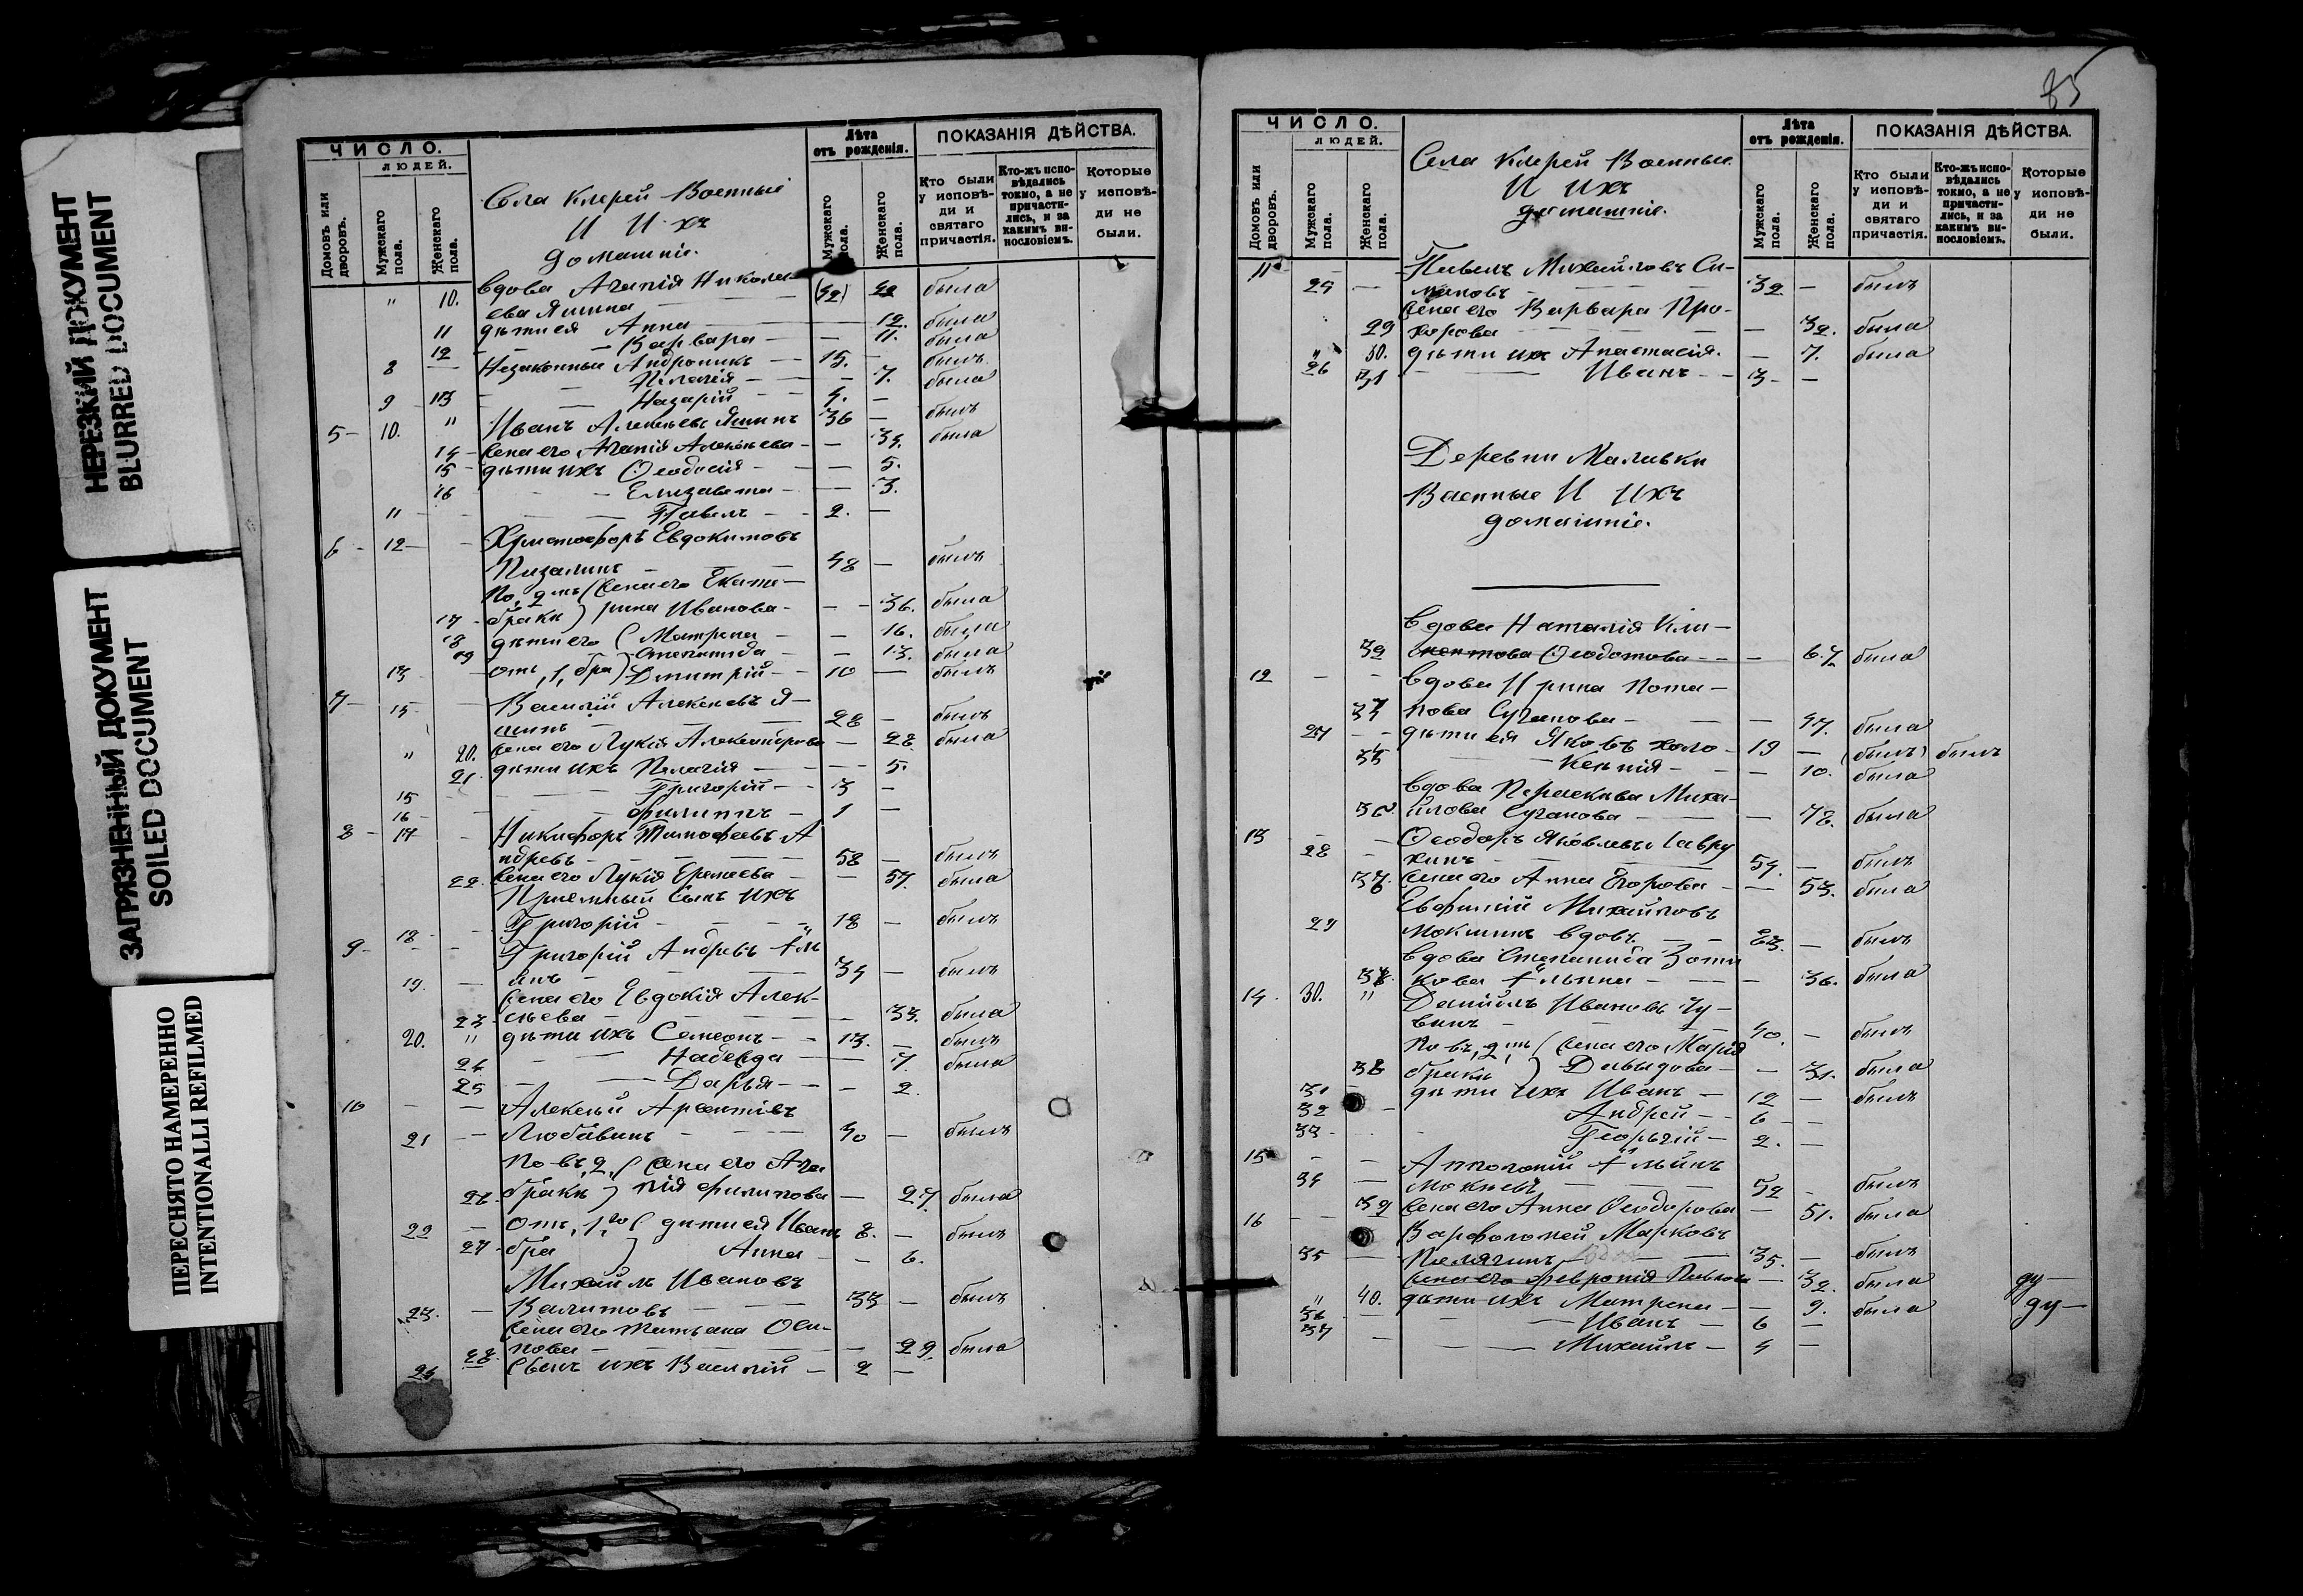 НЕРЕЗКИЙ ДОКУМЕНТ
BLURRED DOCUMENT
ЗАГРЯЗНЕННЫЙ ДОКУМЕНТ
SOILED DOCUMENT
ПЕРЕСНЯТО НАМЕРЕННО
INTENTIONALLI REFILMED
ЧИСЛО.
ЛЮДЕЙ.
Домовъ или дворовъ.
Мужскаго пола.
Женскаго пола.
Села Клерей Военные
И Ихъ
домашніе.
Лѣта
отъ рожденія.
Мужскаго пола.
Женскаго пола.
ПОКАЗАНІЯ ДѢЙСТВА.
Кто были у исповѣди и святаго причастія.
Кто-жъ исповѣдались токмо, а не причастились, и за какимъ винословіемъ.
Которые у исповѣди не были.
" 10. Вдова Агапія Николаева Яшина была
11 дѣти ея Анна 12. была
12 Варвара 11. была
8 Незаконные Андроникъ 15. былъ
13 Пелагія 7. была
9 Назарій 4. —
5 10. " Иванъ Алексѣевъ Яшинъ 36 — былъ
14 жена его Агапія Алексѣева — 34. была
15 дѣти ихъ Ѳеодосія — 5.
16 Елизавета — 3.
11 Павелъ 2. —
6 12 Христофоръ Евдокимовъ
48 — былъ
По 2мъ жена его Екате-
17 бракѣ рина Иванова — 36. была
18 дѣти его Матрона — 16. была
19 Степанида — 13. была
13 отъ 1 бра Дмитрій 10 — былъ
7 15 Василій Алексѣевъ Я-
шинъ 28 — былъ
" 20. жена его Лукія Александрова — 28 была
21 дѣти ихъ Пелагія — 5.
15 Григорій 3 —
16 Филиппъ 1 —
8 17 Никифоръ Тимофеевъ А
ндревъ 58 — былъ
22. жена его Лукія Еремеева — 57. была
Приемный сынъ ихъ
18 Григорій 18 — былъ
9 Григорій Андревъ
19. 34 — былъ
жена его Евдокія Алек-
23 сѣева — 33. была
20. " дѣти ихъ Семеонъ 13. — былъ
24 Надежда — 7 была
25 Дарья — 2.
10 Алексѣй
21 Любавинъ 40 — былъ
По въ 2 жена его Ага
26. бракѣ пія Филипова — 27 была
22 отъ 1го дѣти ея Иванъ 8. — былъ
27 бра Анна — 6.
Михаилъ Ивановъ
23. 33 — былъ
жена его Татьяна Оси-
28 пова — 29 была
24 Сынъ ихъ Василій 2 —
85
ЧИСЛО.
ЛЮДЕЙ.
Домовъ или дворовъ.
Мужскаго пола.
Женскаго пола.
Села Клерей Военные
И Ихъ
домашніе.
Лѣта
отъ рожденія.
Мужскаго пола.
Женскаго пола.
ПОКАЗАНІЯ ДѢЙСТВА.
Кто были у исповѣди и святаго причастія.
Кто-жъ исповѣдались токмо, а не причастились, и за какимъ винословіемъ.
Которые у исповѣди не были.
11 Павелъ Михайловъ Си-
25 — мановъ 32 — былъ
жена его Варвара Про-
29 хорова — 32. была
" 30. дѣти ихъ Анастасія. — 7. была
26 31 Иванъ 3 —
Деревни Маливки
Военные И Ихъ
домашніе.
Вдова Наталія Кли-
32 ментова Ѳеодотова — 67. была
12 Вдова Ирина Пота-
33 пова Суганова — 47. была
27 дѣти ея Яковъ холо- 19 — (былъ) былъ
35 Ксенія — 10. была
Вдова Параскева Миха-
36 йлова Суганова — 78. была
13 Ѳеодоръ Яковлевъ Лавру
28 хинъ 54. — былъ
37. жена его Анна Егорова — 53. была
Евфимій Михайловъ
29 Мокшинъ вдовъ 63. — былъ
вдова Степанида
— 36. была
14 30. " Даніилъ Ивановъ Чу-
винъ 40. — былъ
По въ 2мъ жена его Марія
38 бракѣ Давыдова — 31. была
31 дѣти ихъ Иванъ 12 — былъ
32 Андрей 6 —
33 Георгій 2. —
15 Апполоній
34 52 — былъ
39 жена его Анна Ѳеодорова — 51. была
16 Варфоломей Марковъ
35 — 35. — былъ
жена его Февронія Павлова — 32. была
" 40. дѣти ихъ Матрона — 9. была
36 Иванъ 6 —
37 Михаилъ 4 —